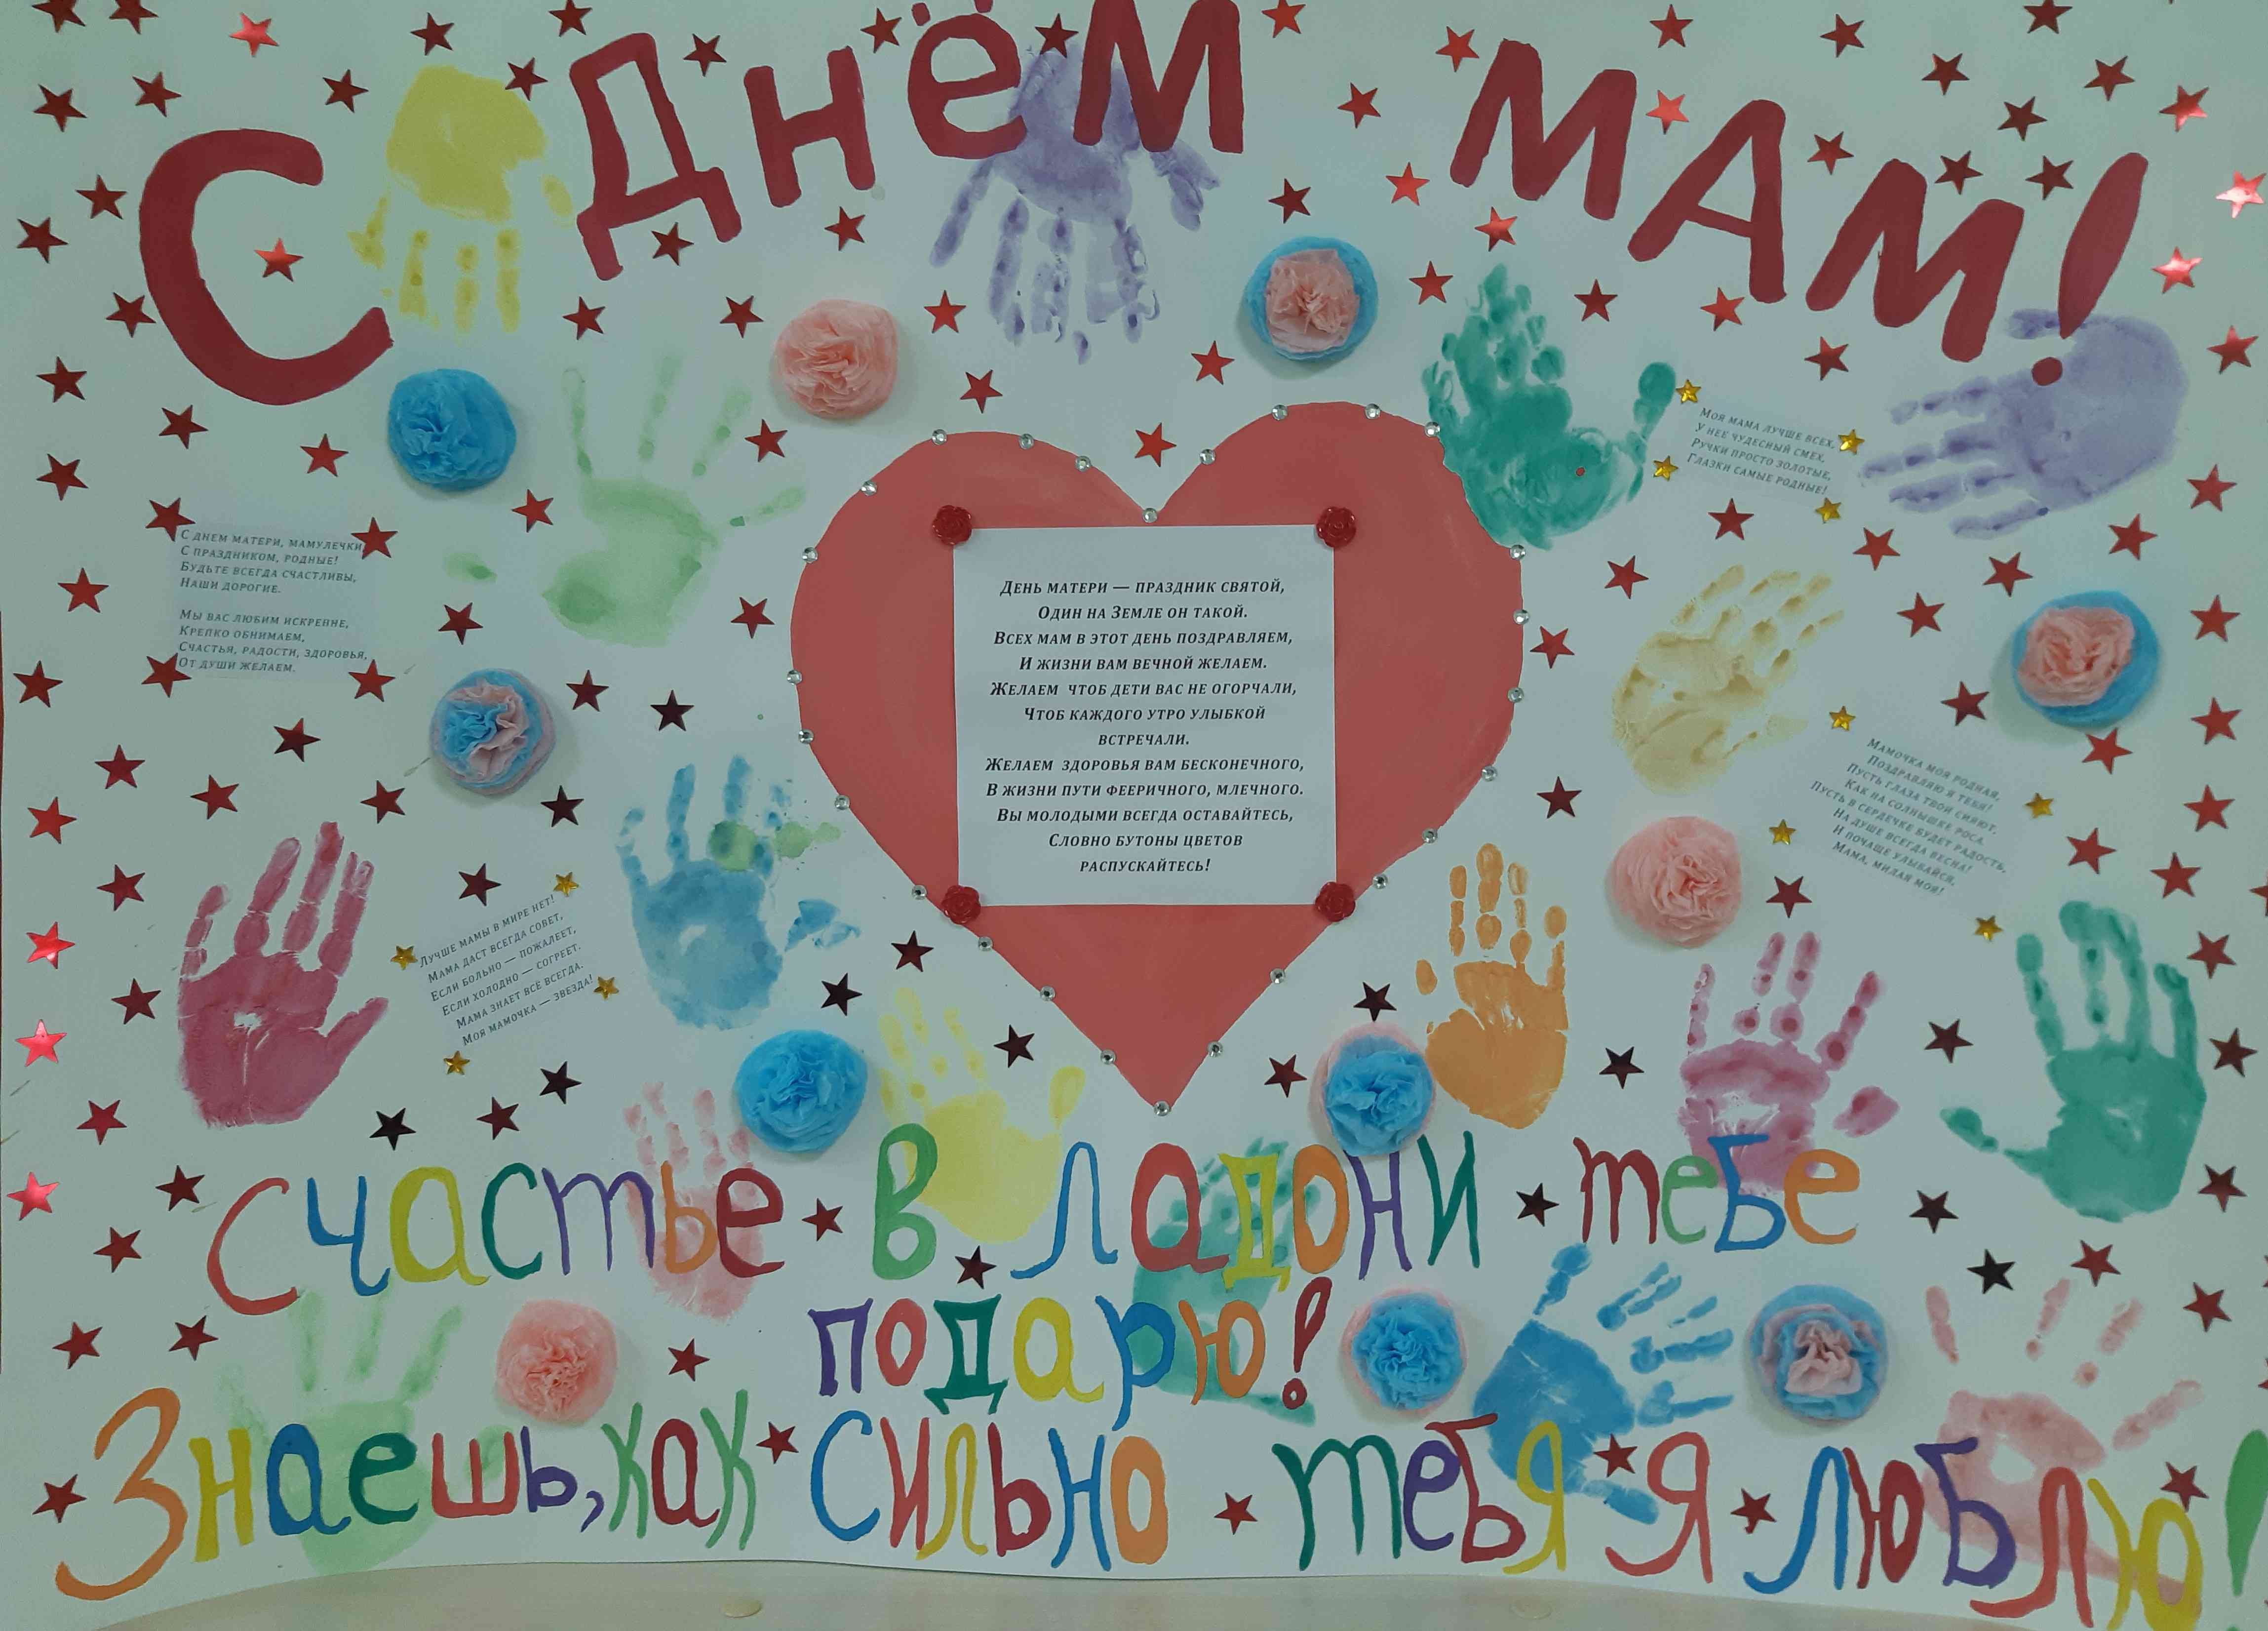 С Днём МАМ!
Моя мама лучше всех,
У нее чудесный смех,
Ручки просто золотые,
Глазки самые родные!
С днем матери, мамулечки,
С праздником, родные!
Будьте всегда счастливы,
Наши дорогие.
Мы вас любим искренне,
Крепко обнимаем,
Счастья, радости, здоровья,
От души желаем.
День матери — праздник святой,
Один на Земле он такой.
Всех мам в этот день поздравляем,
И жизни вам вечной желаем.
Желаем чтоб дети вас не огорчали,
Чтоб каждого утро улыбкой
встречали.
Желаем здоровья вам бесконечного,
В жизни пути фееричного, млечного.
Вы молодыми всегда оставайтесь,
Словно бутоны цветов
распускайтесь!
Мамочка моя родная,
Поздравляю я тебя!
Пусть глаза твои сияют,
Как на солнышке роса.
Пусть в сердечке будет радость,
На душе всегда весна!
И почаще улыбайся,
Мама, милая моя!
Лучше мамы в мире нет!
Мама даст всегда совет,
Если больно — пожалеет,
Если холодно — согреет.
Мама знает всё всегда.
Моя мамочка — звезда!
Счастье в ладони тебе
подарю!
Знаешь, как сильно тебя я люблю!